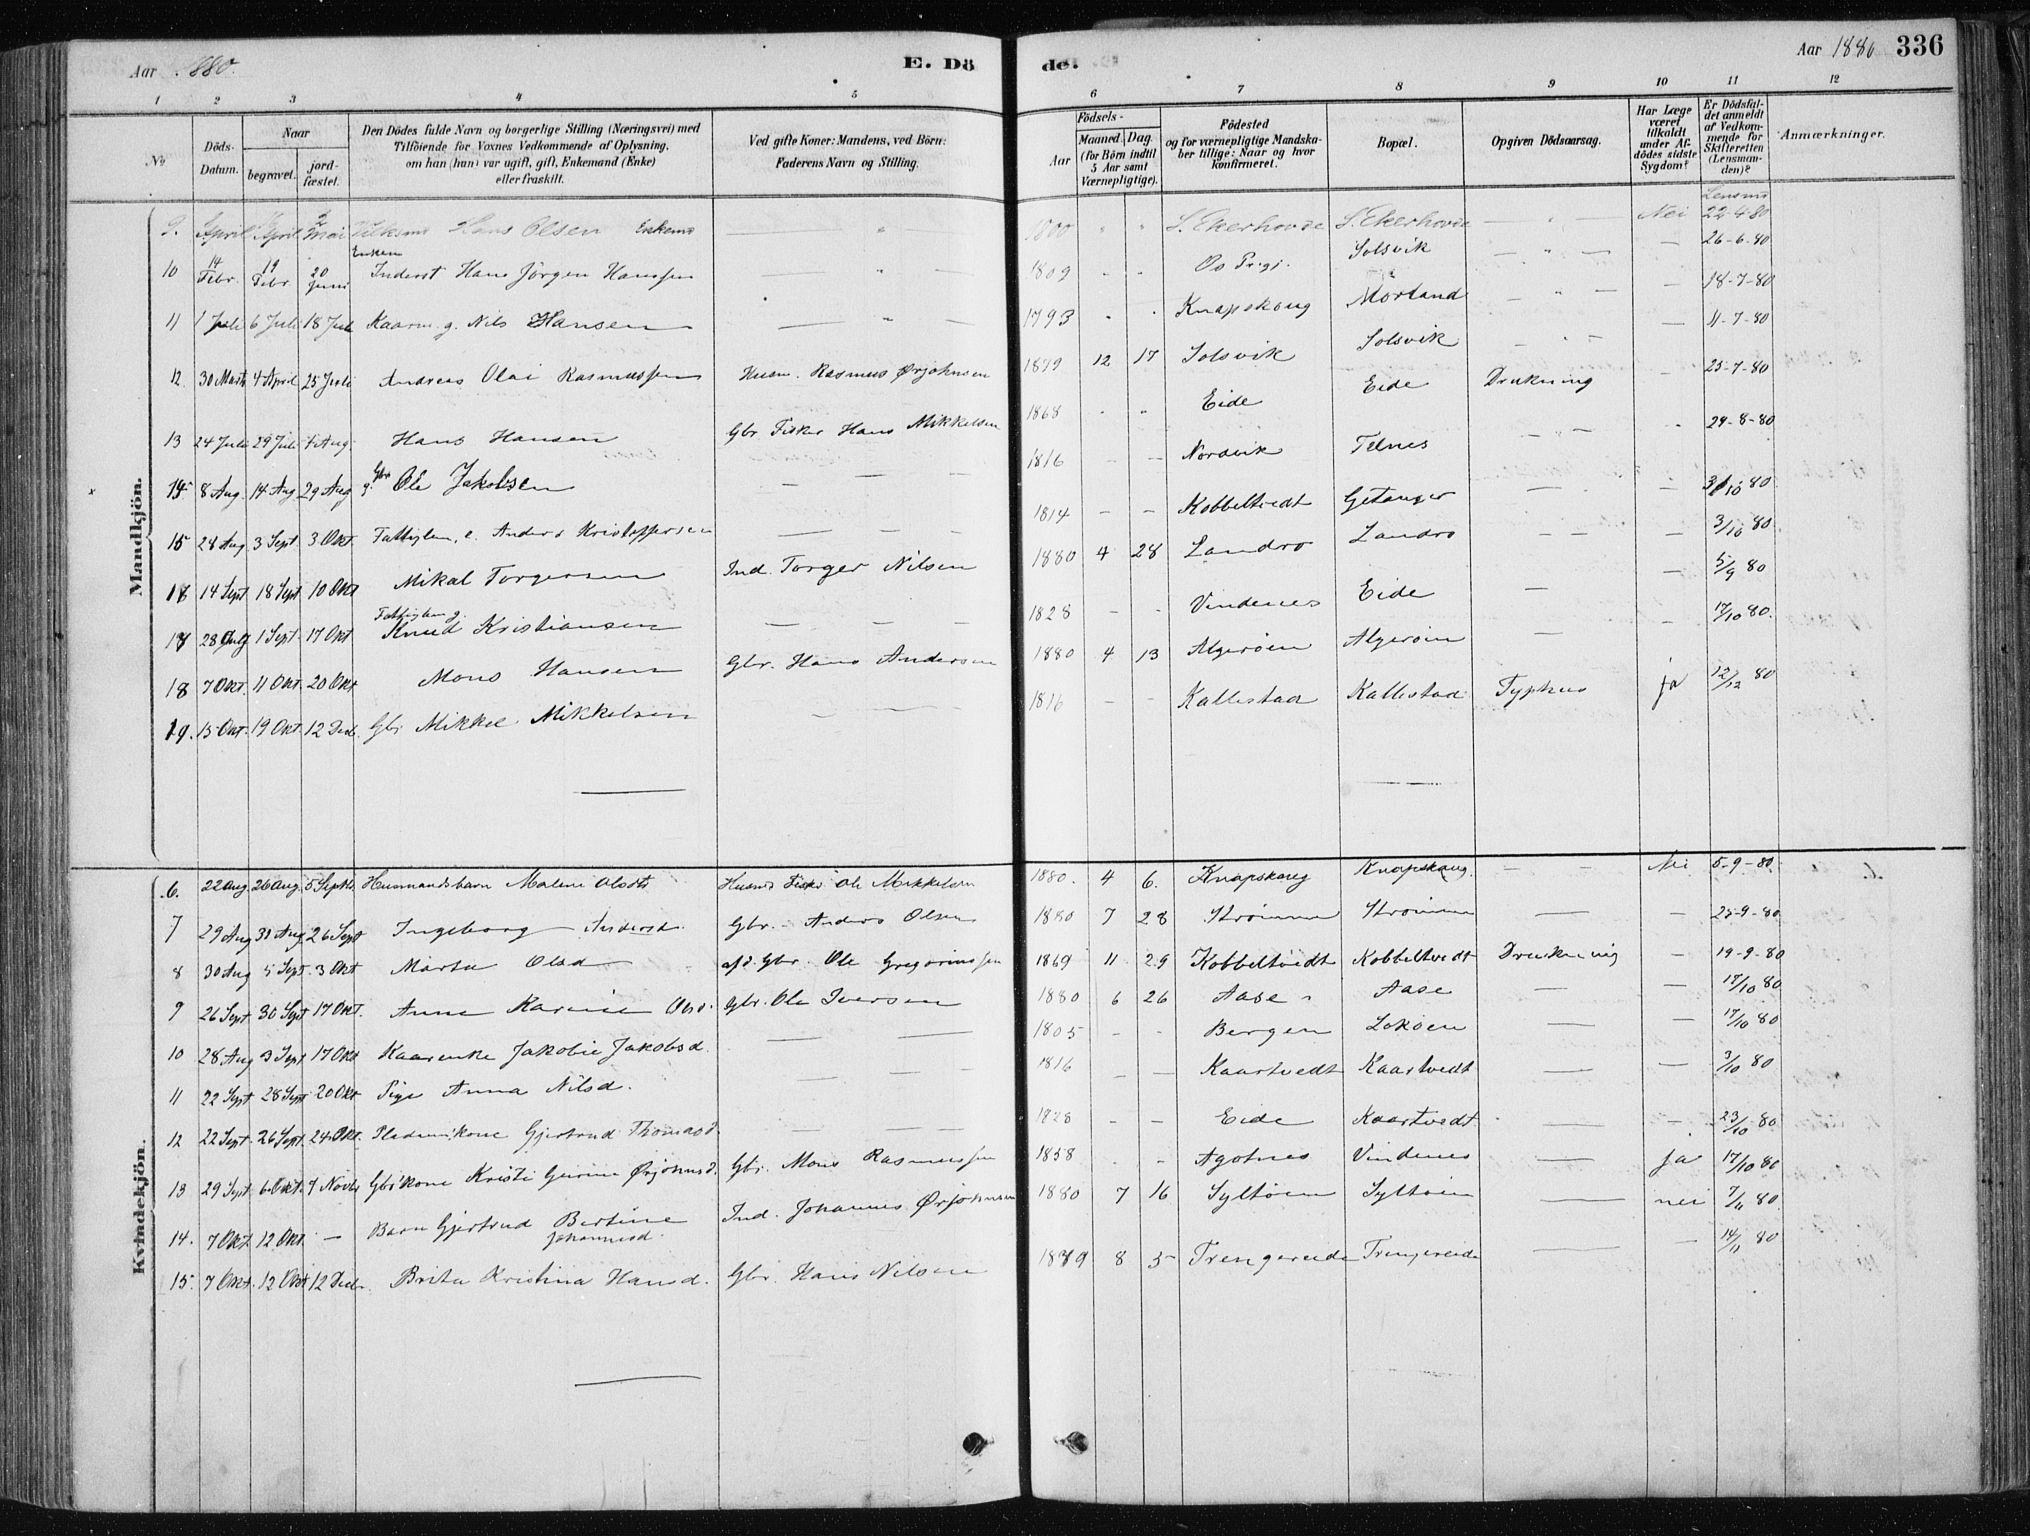 Aar 1880. E. Döde. Aar 1880 336
1 2 3 4 5 6 7 8 9 10 11 12
No
Döds-Datum.
Naar
begravet.
jordfæstet.
Den Dödes fulde Navn og borgerlige Stilling (Næringsvei) med
Tilföiende for Voxnes Vedkommende af Oplysning,
om han (hun) var ugift, gift, Enkemand (Enke)
eller fraskilt.
Ved gifte Koner: Mandens, ved Börn:
Faderens Navn og Stilling.
Födsels-
Aar
Maaned. Dag.
(for Börn indtil
5 Aar samt
Værnepligtige).
Födested
og for værnepligtige Mandskaber tillige: Naar og hvor
konfirmeret.
Bopæl.
Opgiven Dödsaarsag.
Har Læge
været
tilkaldt
under Afdödes sidste
Sygdom?
Er Dödsfaldet anmeldt
af Vedkommende for
Skifteretten
(Lensmanden)?
Anmærkninger.
Mandkjön.
9. April April Mai Hans Olsen Enkem. 1800 S. Ekerhovde S. Ekerhovde Nei Lensm 22-4-80
10 14 Febr. 19 Febr. 20 Juni Enkem Inderst Hans Jörgen Hanssen 1809 Os Prgj. Solsvik 26-6-80
11 1 Juli 6 Juli 18 Juli Kaarm. g. Nils Hansen 1793 Knapskoug Morland 18-7-80
12 30 Marts 4 April 25 Juli Andreas Olai Rasmussen Husm. Rasmus Ørjohnsen 1879 12 17 Solsvik Solsvik 11-7-80
13 24 Juli 29 Juli 1 Aug Hans Hansen Gbr Fisker Hans Mikkelsen 1868 Eide Eide Drukning 25-7-80
14 8 Aug. 14 Aug 29 Aug g. Gbr Ole Jakobsen 1816 Nordvik Telnes 29-8-80
15 28 Aug 3 Sept. 3 Okt. Fattiglem, e. Anders Kristoffersen 1814 Kobbeltvedt Getanger 3/10 80
16 14 Sept 18 Sept 10 Okt Mikal Torgersen Ind. Torger Nilsen 1880 4 28 Landro Landro 3/10 80
17 28 Aug 1 Sept. 17 Okt Fattiglem g. Knud Kristiansen 1828 Vindenes Eide 5/9 80
18 7 Okt. 11 Okt. 20 Okt Mons Hansen Gbr. Hans Andersen 1880 4 13 Algerøen Algerøen 17/10 80.
19. 15 Okt. 19 Okt. 12 Dec. Gbr Mikkel Mikkelsen 1816 Kallestad Kallestad Typhus ja 12/12 80
Kvindekjön.
6. 22 Aug 26 Aug. 5 Septb. Husmandsbarn Malene Olsdtr Husmd Fisker Ole Mikkelsen 1880. 4 6. Knapskoug Knapskoug. Nei 5-9-80
7 29 Aug 31 Aug 26 Sept Ingeborg Andersd. Gbr. Anders Olsen 1880 7 28 Strømme Strømme 25-9-80
8 30 Aug 5 Sept 3 Okt Marta Olsd afd. Gbr. Ole Gregoriussen 1869 11 29 Kobbeltvedt Kobbeltvedt Drukning 19-9-80
9 26 Sept 30 Sept 17 Okt. Anne Karine Olsd. Gbr. Ole Iversen 1880 6 26 Aase Aase 17/10 80
10 28 Aug 3 Sept 17 Okt Kaarenke Jakobie Jakobsd. 1805 Bergen Lokøen 17/10 80
11 22 Sept 28 Sept 20 Okt Pige Anna Nilsd. 1816 Kaartvedt Kaartvedt 3/10 80
12 22 Sept. 26 Sept. 24 Okt. Gjertrud Thomasd. 1828 Eide Kaartvedt 23/10 80
13 29 Sept 6 Okt. 7 Novbr Gbrkone Kristi Gurine Ørjohnsd. Gbr. Mons Rasmussen 1858 Agotnes Vindenes ja 17/10 80
14. 7 Okt 12 Okt — Barn Gjertrud Bertine Johannesd. Ind. Johannes Ørjohnsen 1880 7 16 Syltøen Syltøen nei 7/11 80.
15. 7 Okt. 12 Okt 12 Decbr. Brita Kristina Hansd. Gbr. Hans Nilsen 1879 8 5 Trengereide Trengereide 14/11 80